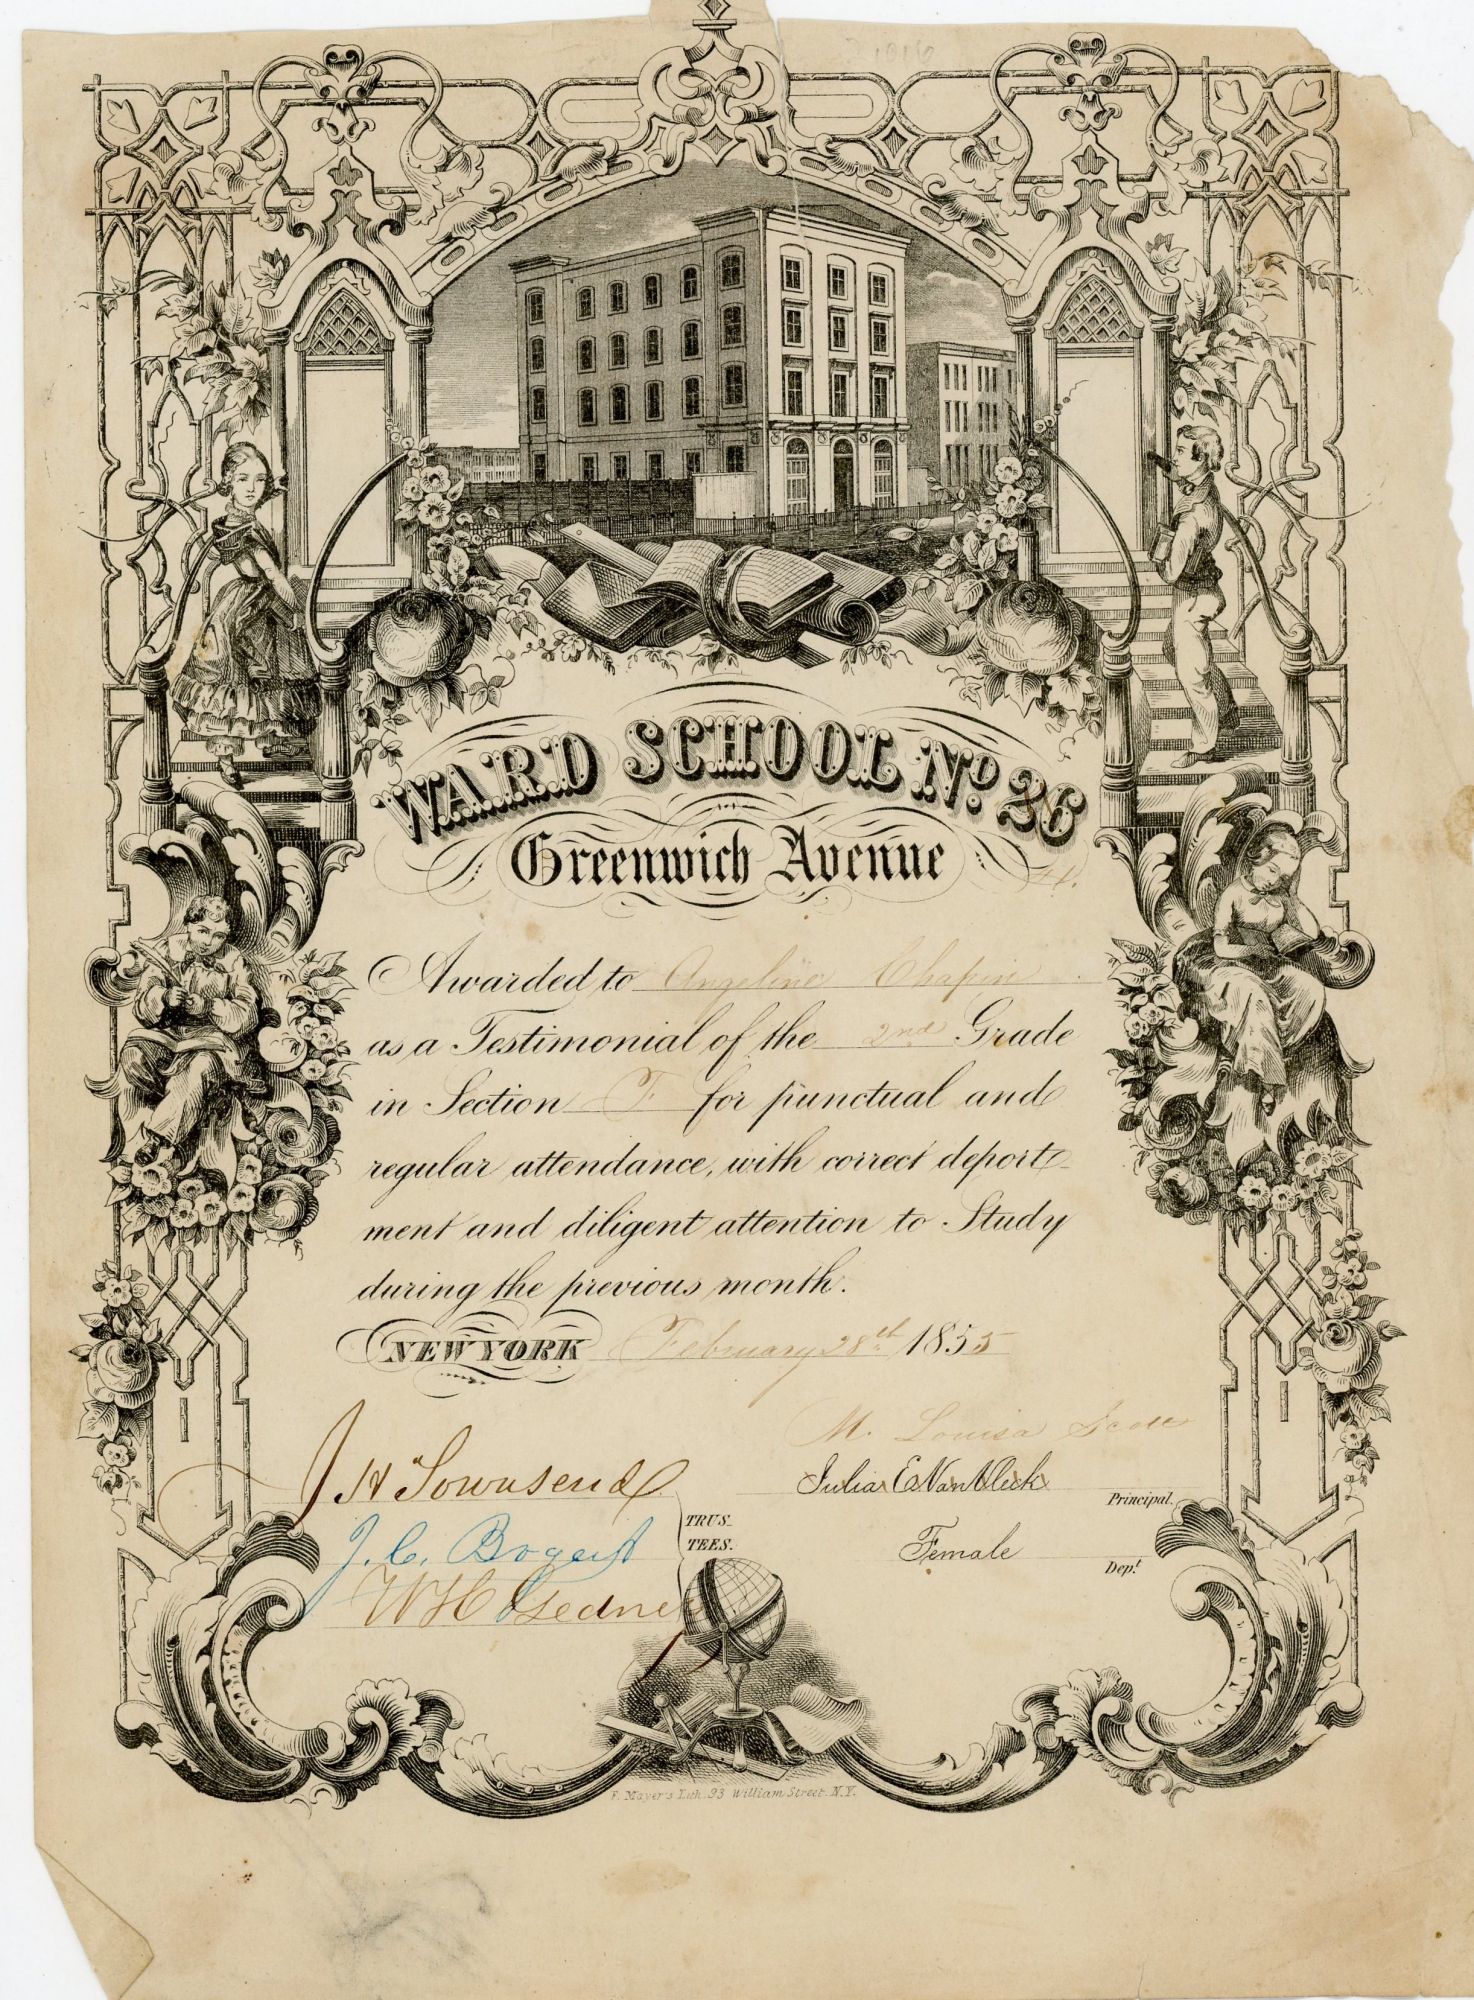 WARD SCHOOL No. 26
41.
Greenwich Avenue
Awarded to Angeline Chapin
as a Testimonial of the 2nd Grade
in Section F for punctual and
regular attendance, with correct deport-
ment and diligent attention to Study
during the previous month.
NEW YORK February 28th 1855
M. Louisa Scott
J H Townsend
Julia E. Van Vleck
Principal.
TRUS-
TEES.
J. C. Bogert
Female
Dept.
W H Gedney
F. Mayer's Lith. 93 William Street. N.Y.